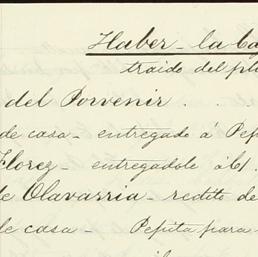 Haber - la Ca
traido del pl
del Porvenir . .
de casa - entregado á Pep
Florez - entregadole á él.
de Olavarria - redito de
de casa - Pepita para